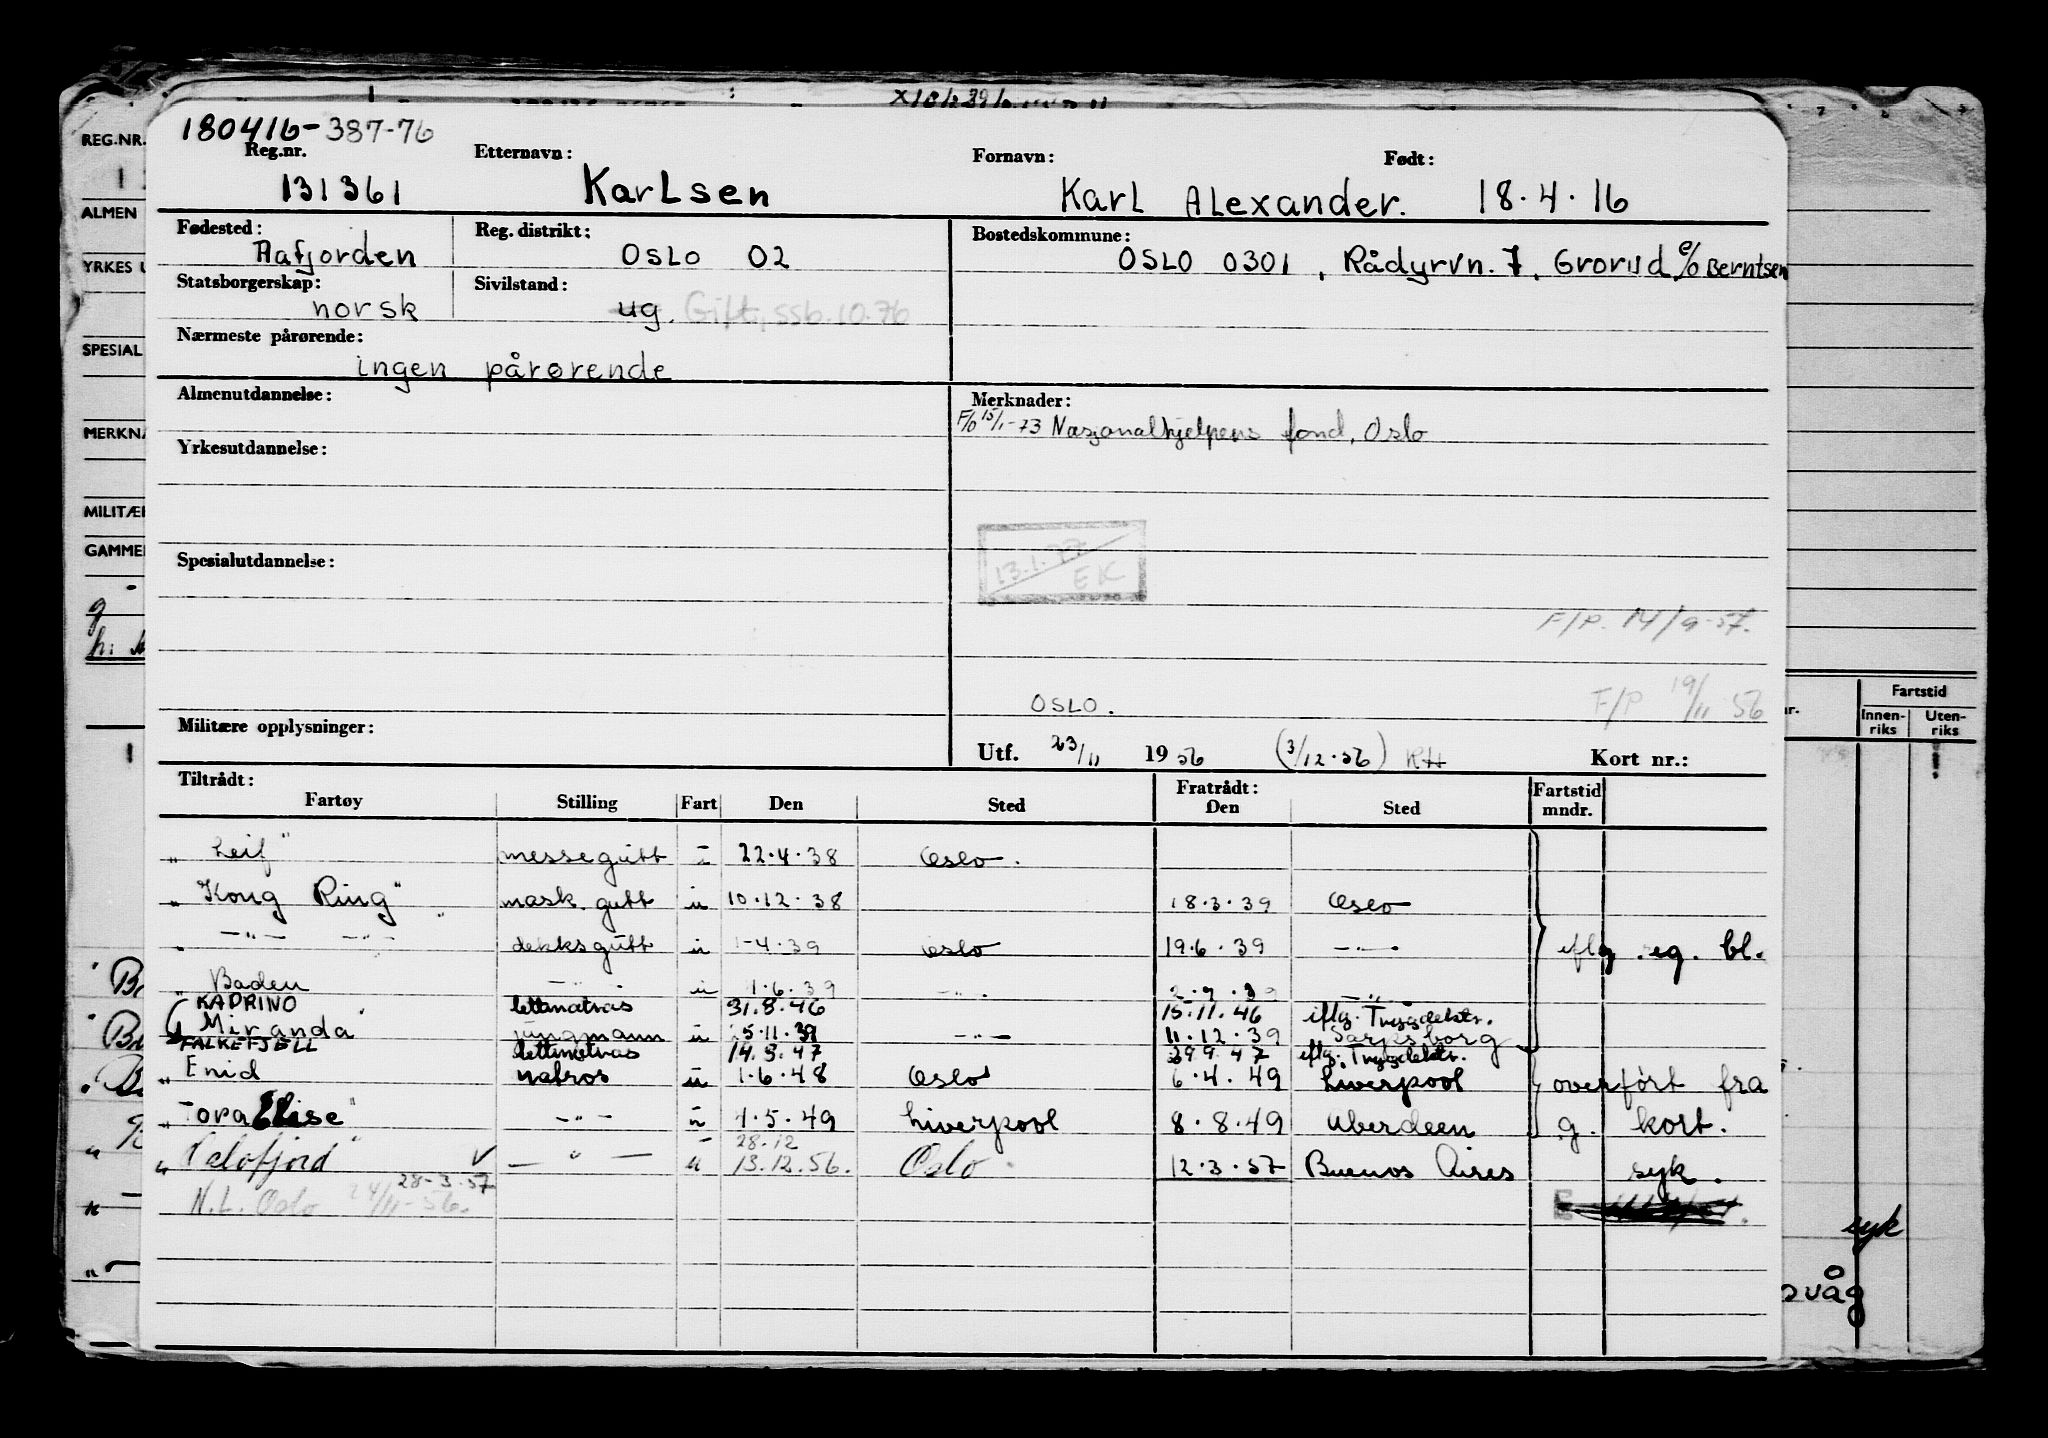 180416-387-76
Reg.nr. Etternavn: Fornavn: Født:
131361 Karlsen Karl Alexander. 18.4.16
Fødested: Reg. distrikt: Bostedskommune:
Aafjorden OSLO 02 OSLO 0301, Rådyrvn. 7, Grorud c/o Berntsen
Statsborgerskap: Sivilstand:
norsk ug. Gift, ssb. 10.76
Nærmeste pårørende:
ingen pårørende
Almenutdannelse: Merknader:
F/o 15/1-73 Nasjonalhjelpens fond, Oslo
Yrkesutdannelse:
13.1.77
EK
Spesialutdannelse:
F/P. 14/9-57.
OSLO. F/P 19/11 56
Militære opplysninger:
Utf. 23/11 1956 (3/12.56) RH Kort nr.:
Tiltrådt: Fratrådt: Fartstid
Fartøy Stilling Fart Den Sted Den Sted mndr.
" Leif" messegutt 22.4.38 Oslo.
" Kong Ring" mask. gutt u 10.12.38 18.3.39 Oslo
" —"— —"— dekksgutt u 1-4.39 Oslo 19.6.39 —"— iflg. reg. bl.
" Baden —"— u 1.6.39 —"—. 2.9.39 —"—
KADRINO lettmatros 31.8.46 15.11.46 iflg. Tryggdektr.
Miranda" jungmann u 15.11.39 —"— 11.12.39 Sarpsborg
FALKEFJELL lettmatros 14.8.47 29.9.47 iflg. Tryggdektr.
" Enid matros u 1.6.48 Oslo 6.4.49 Liverpool overført fra
Tora Elise" —"— u 4.5.49 Liverpool 8.8.49 Aberdeen g. kort.
28.12
" Oslofjord" ✓ —"— u 13.12.56. Oslo. 12.3.57 Buenos Aires syk.
28-3.57
N.L. Oslo 24/11-56.
REG.NR.
ALMEN
YRKES U
SPESIAL
MERKNA
MILITÆR
GAMMEL
Fartstid
Innen-riks Uten-riks
syk